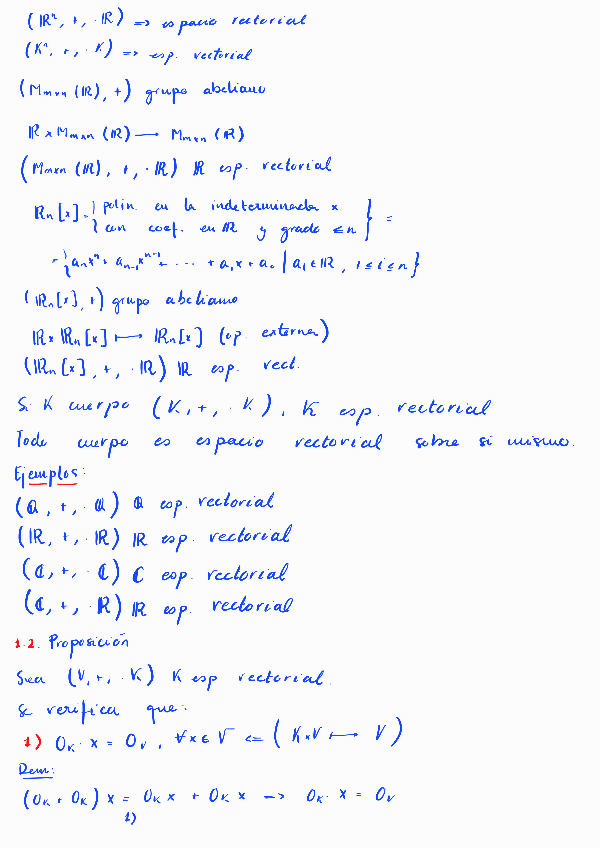 (ℝⁿ, +, ·ℝ) => espacio vectorial
(Kⁿ, +, ·K) => esp. vectorial
(Mmxn (ℝ), +) grupo abeliano
ℝ x Mmxn (ℝ) → Mmxn (ℝ)
(Mmxn (ℝ), +, ·ℝ) ℝ esp. vectorial
ℝn[x] = { polin. en la indeterminada x
con coef. en ℝ y grado ≤ n } =
= { aₙxⁿ + aₙ₋₁xⁿ⁻¹ + ... + a₁x + a₀ | aᵢ ∈ ℝ, 1 ≤ i ≤ n }
(ℝn[x], +) grupo abeliano
ℝ x ℝn[x] ⟼ ℝn[x] (op. externa)
(ℝn[x], +, ·ℝ) ℝ esp. vect.
Si K cuerpo (K, +, ·K), K esp. vectorial
Todo cuerpo es espacio vectorial sobre si mismo.
Ejemplos:
(ℚ, +, ·ℚ) ℚ esp. vectorial
(ℝ, +, ·ℝ) ℝ esp. vectorial
(ℂ, +, ·ℂ) ℂ esp. vectorial
(ℂ, +, ·ℝ) ℝ esp. vectorial
1.2. Proposición
Sea (V, +, ·K) K esp vectorial.
Se verifica que:
1) 0ₖ · x = 0ᵥ, ∀x ∈ V <= (K x V ⟼ V)
Dem:
(0ₖ + 0ₖ) x = 0ₖ x + 0ₖ x → 0ₖ · x = 0ᵥ
1)